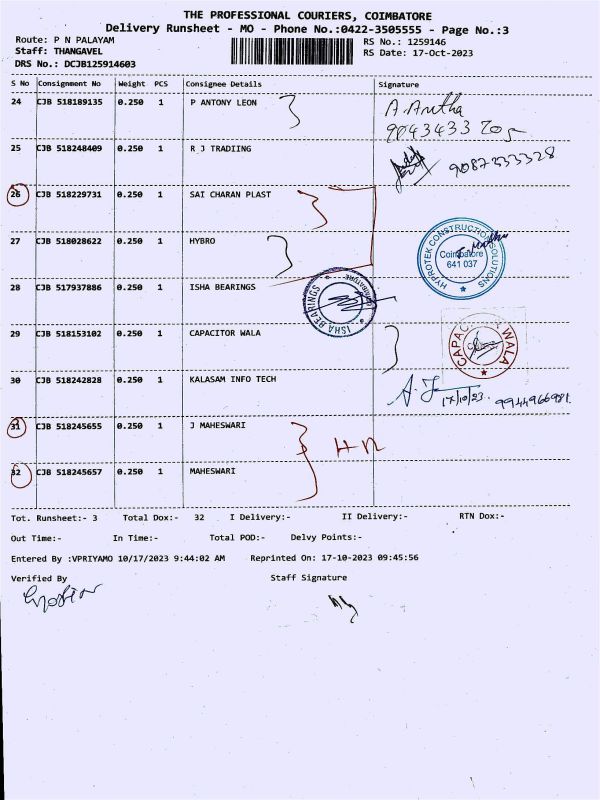 THE PROFESSIONAL COURIERS, COIMBATORE
Delivery Runsheet - MO - Phone No.:0422-3505555 - Page No.:3
Route: P N PALAYAM
RS No.: 1259146
Staff: THANGAVEL
RS Date: 17-Oct-2023
DRS No.: DCJB125914603
S No Consignment No Weight PCS Consignee Details Signature
24 CJB 518189135 0.250 1 P ANTONY LEON
25 CJB 518248409 0.250 1 R J TRADIING
9087333328
26 CJB 518229731 0.250 1 SAI CHARAN PLAST
27 CJB 518028622 0.250 1 HYBRO
HYPROTEK CONSTRUCTION SOLUTIONS
Coimbatore
641 037
28 CJB 517937886 0.250 1 ISHA BEARINGS
ISHA BEARINGS
COIMBATORE
29 CJB 518153102 0.250 1 CAPACITOR WALA
CAPACITOR WALA
30 CJB 518242828 0.250 1 KALASAM INFO TECH
17/10/23. 9944966981
31 CJB 518245655 0.250 1 J MAHESWARI
32 CJB 518245657 0.250 1 MAHESWARI
Tot. Runsheet:- 3 Total Dox:- 32 I Delivery:- II Delivery:- RTN Dox:-
Out Time:- In Time:- Total POD:- Delvy Points:-
Entered By :VPRIYAMO 10/17/2023 9:44:02 AM Reprinted On: 17-10-2023 09:45:56
Verified By Staff Signature